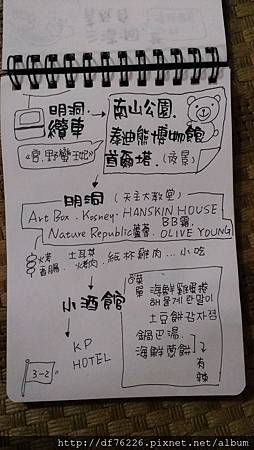 明洞.
纜車
《宮.野蠻王妃》
南山公園.
泰迪熊博物館
首爾塔.(夜景)
明洞(天主大教堂)
Art Box.Kosney.HANSKIN HOUSE
BB霜.
Nature Republic蘆薈.OLIVE YOUNG
烤香腸
土耳其烤肉.紙杯雞肉...小吃
小酒館
KP
HOTEL
3-2
菜單
海鮮雞蛋捲
해물계란말이
土豆餅감자전
鍋巴湯.
海鮮蔥餅
有辣
http://df76226.pixnet.net/album